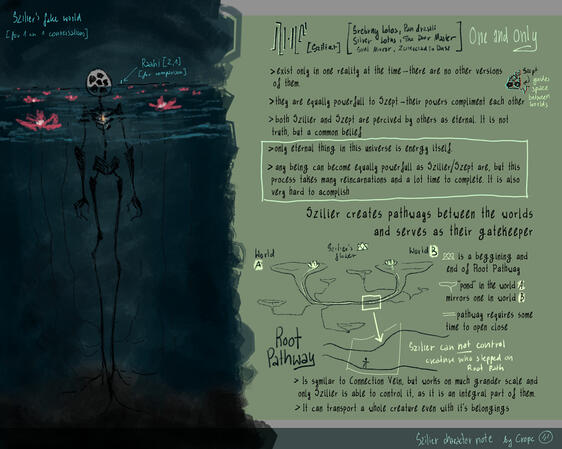 Szilier's fake world
[for 1 on 1 conversations]
Rashl [2,1]
[for comparison]
[Szilier]
Srebrny Lotos, Pan drzwii
Silver Lotus, The Door Master
One and Only
> exist only in one reality at the time – there are no other versions
of them.
Szept
guides
space
between
worlds
> they are equally powerfull to Szept – their powers compliment each other
> both Szilier and Szept are percived by others as eternal. It is not
truth, but a common belief
> only eternal thing in this universe is energy itself
> any being can become equally powerfull as Szilier/Szept are, but this
process takes many reincarnations and a lot time to complete. It is also
very hard to acomplish
Szilier creates pathways between the worlds
and serves as their gatekeeper
World
A
Szilier's
flower
World B
is a beggining and
end of Root Pathway
"pond" in the world A
mirrors one in world B
pathway requires some
time to open close
Root
Pathway
Szilier can not control
creature who stepped on
Root Path
> Is symilar to Connection Vein, but works on much grander scale and
only Szilier is able to control it, as it is an integral part of them.
> It can transport a whole creature even with it's belongings
Szilier character note by Crope